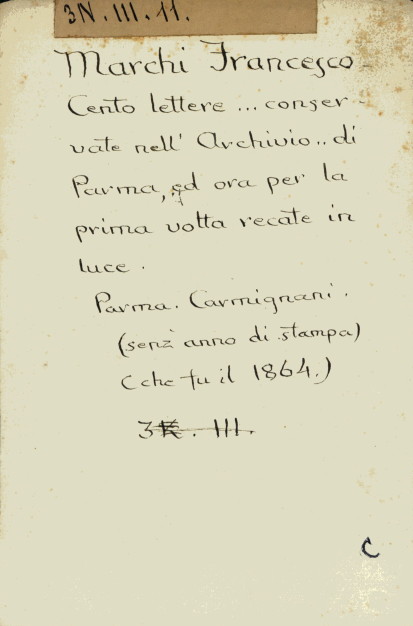 3N.III.11.
Marchi Francesco
Cento lettere ... conser-
vate nell' Archivio .. di
Parma, ed ora per la
prima volta recate in
luce.
Parma. Carmignani.
(senz' anno di stampa)
(che fu il 1864.)
3 . III.
C